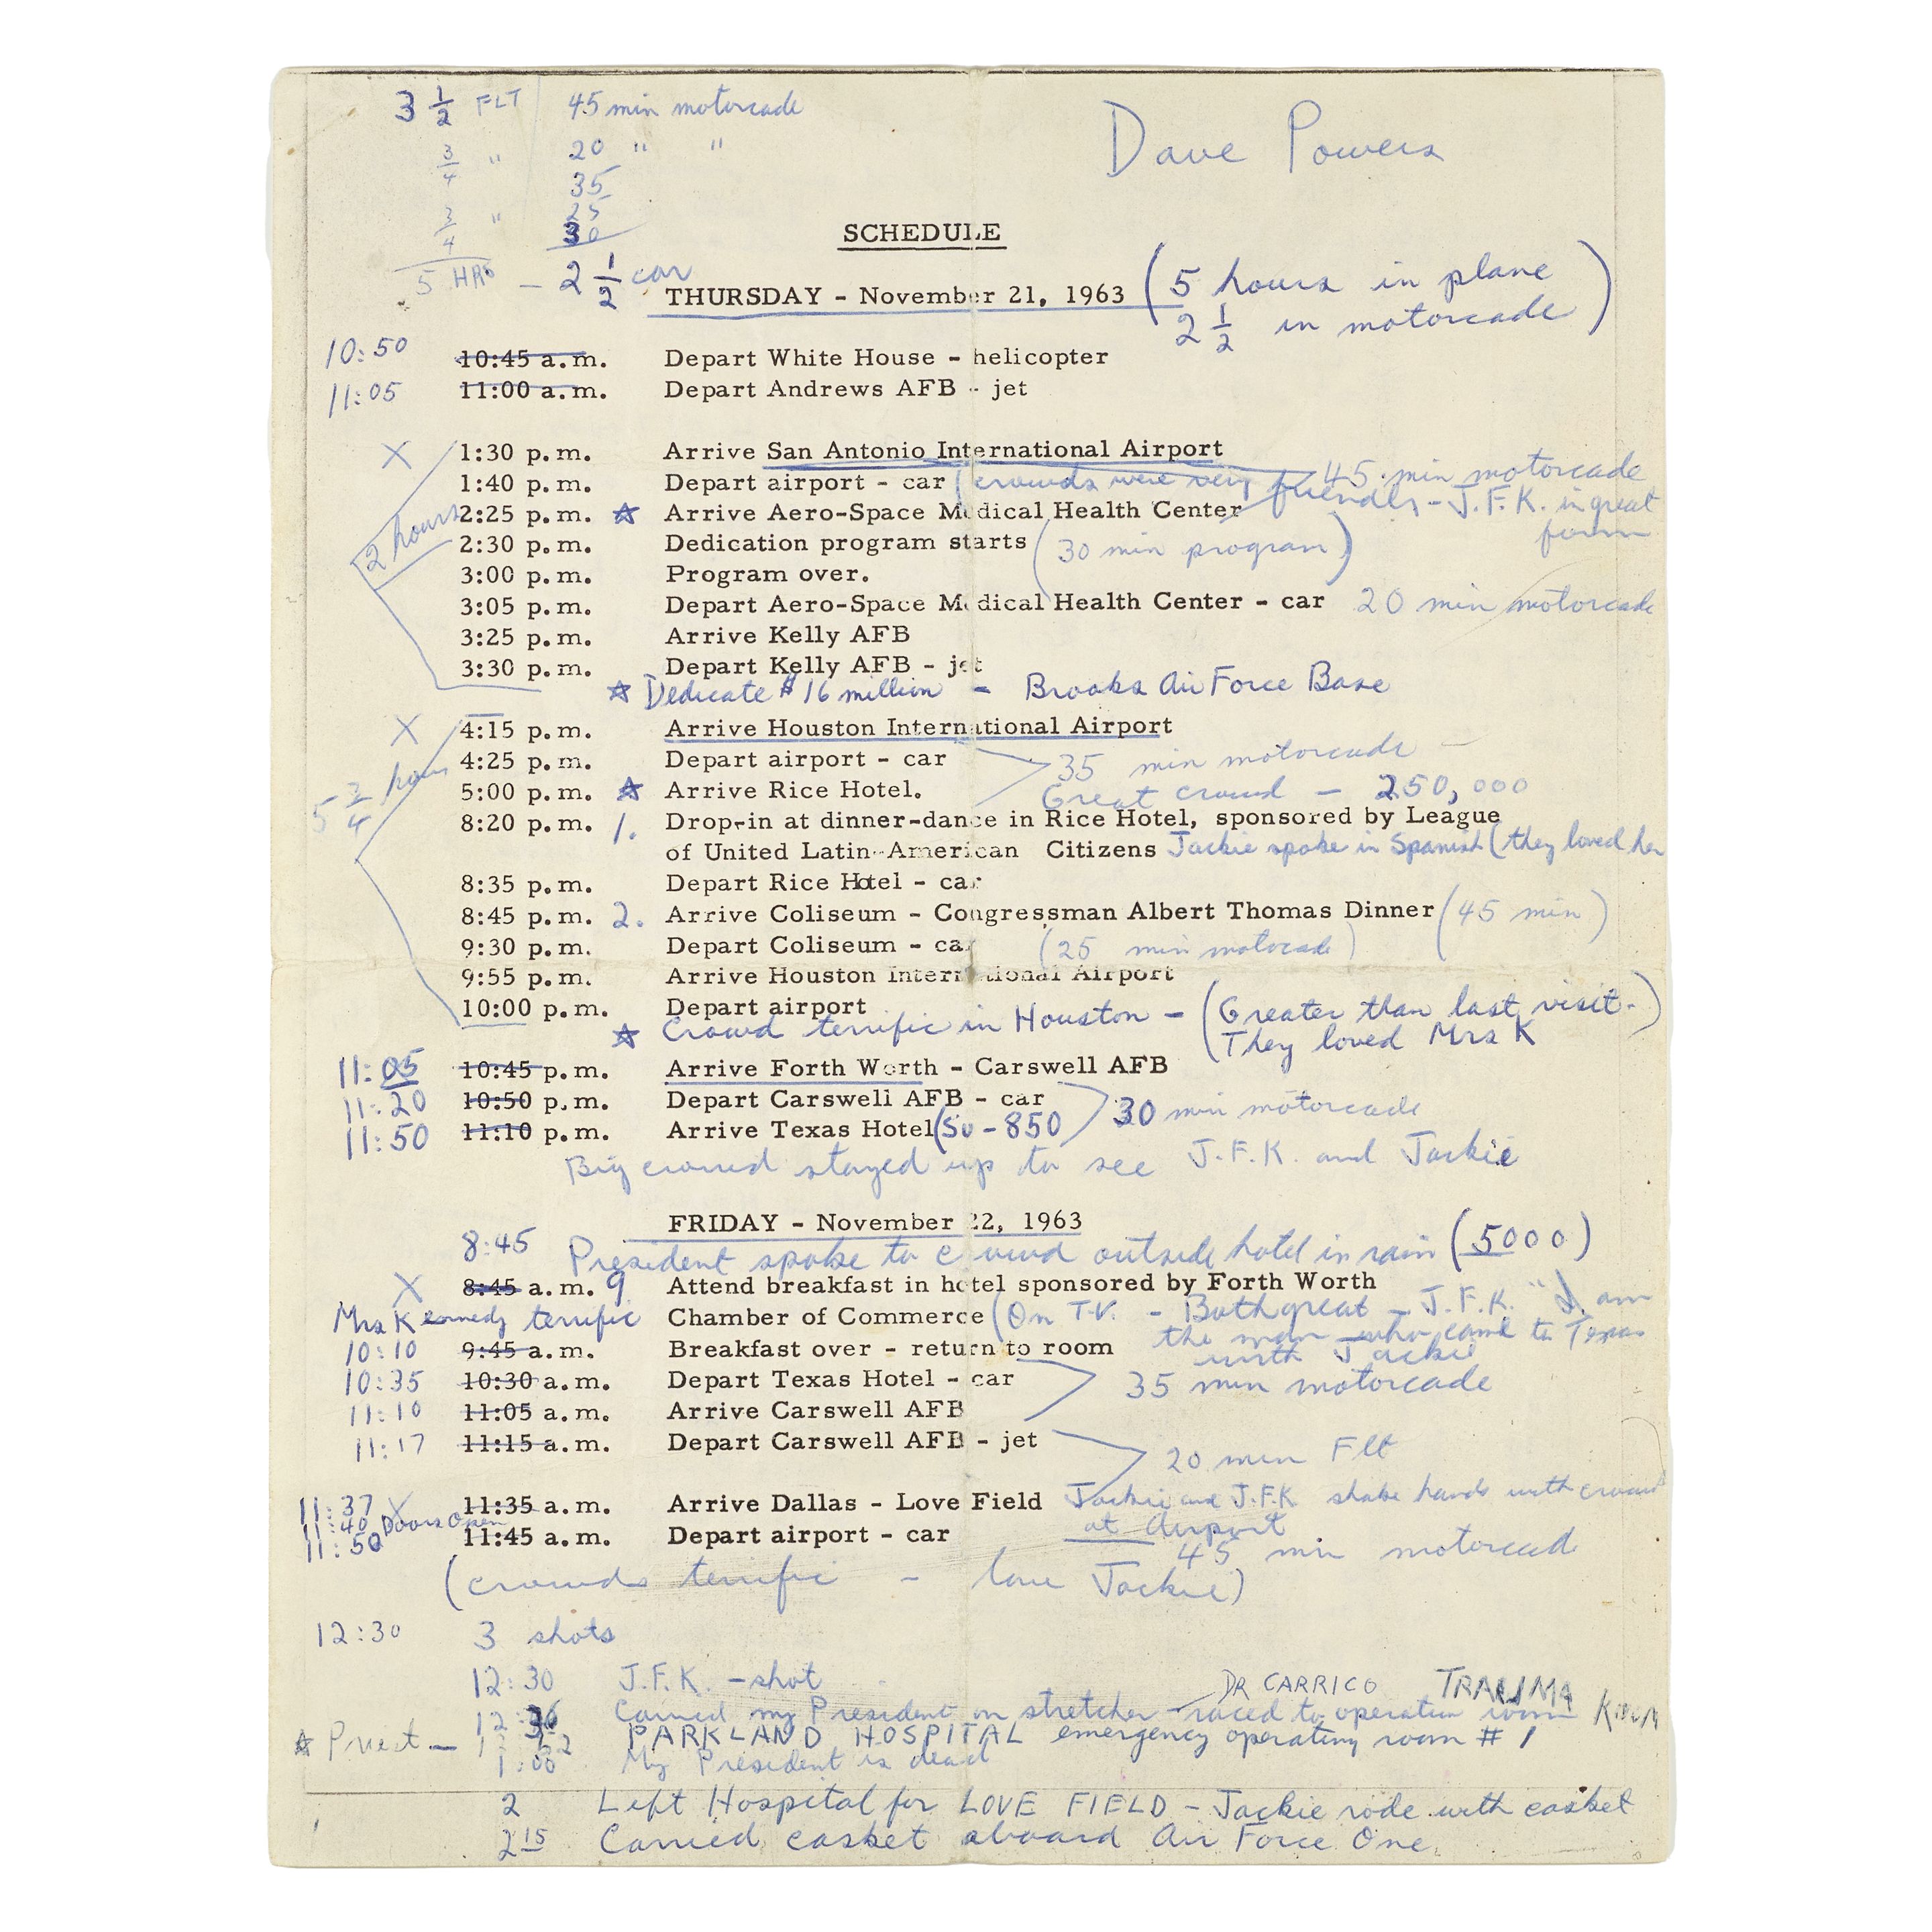 3 1/2 FLT 45 min motorcade
Dave Powers
3/4 " 20 " "
35
3/4 " 25
30
5 HRS - 2 1/2 car
SCHEDULE
THURSDAY - November 21, 1963 (5 hours in plane
2 1/2 in motorcade)
10:50 10:45 a.m. Depart White House - helicopter
11:05 11:00 a.m. Depart Andrews AFB - jet
X 1:30 p.m. Arrive San Antonio International Airport
45 min motorcade
1:40 p.m. Depart airport - car (crowds were very friendly - J.F.K. in great form
2 hours
2:25 p.m. ☆ Arrive Aero-Space Medical Health Center
2:30 p.m. Dedication program starts (30 min program)
3:00 p.m. Program over.
3:05 p.m. Depart Aero-Space Medical Health Center - car 20 min motorcade
3:25 p.m. Arrive Kelly AFB
3:30 p.m. Depart Kelly AFB - jet
☆ Dedicate $16 million - Brooks Air Force Base
X 4:15 p.m. Arrive Houston International Airport
4:25 p.m. Depart airport - car 35 min motorcade -
5 3/4 hours
5:00 p.m. ☆ Arrive Rice Hotel. Great crowd - 250,000
8:20 p.m. 1. Drop-in at dinner-dance in Rice Hotel, sponsored by League
of United Latin-American Citizens Jackie spoke in Spanish (they loved her
8:35 p.m. Depart Rice Hotel - car
8:45 p.m. 2. Arrive Coliseum - Congressman Albert Thomas Dinner (45 min)
9:30 p.m. Depart Coliseum - car (25 min motorcade)
9:55 p.m. Arrive Houston International Airport
10:00 p.m. Depart airport
☆ Crowd terrific in Houston - (Greater than last visit.
They loved Mrs K)
11:05 10:45 p.m. Arrive Forth Worth - Carswell AFB
11:20 10:50 p.m. Depart Carswell AFB - car
30 min motorcade
11:50 11:10 p.m. Arrive Texas Hotel (Su - 850
Big crowd stayed up to see J.F.K. and Jackie
FRIDAY - November 22, 1963
8:45 President spoke to crowd outside hotel in rain (5000)
X 8:45 a.m. 9 Attend breakfast in hotel sponsored by Forth Worth
Mrs Kennedy terrific Chamber of Commerce (On T.V. - Both great - J.F.K. "I am
the man who came to Texas
with Jackie
10:10 9:45 a.m. Breakfast over - return to room
10:35 10:30 a.m. Depart Texas Hotel - car
35 min motorcade
11:10 11:05 a.m. Arrive Carswell AFB
11:17 11:15 a.m. Depart Carswell AFB - jet
20 min Flt
11:37 X 11:35 a.m. Arrive Dallas - Love Field Jackie and J.F.K. shake hands with crowd
at airport
11:40 Doors Open
11:50 11:45 a.m. Depart airport - car
45 min motorcade
(crowds terrific - love Jackie)
12:30 3 shots
12:30 J.F.K. - shot
DR CARRICO TRAUMA
12:36 Carried my President on stretcher - raced to operation room
☆ Priest - PARKLAND HOSPITAL emergency operating room #1
1:00 My President is dead
2 Left Hospital for LOVE FIELD - Jackie rode with casket
2 15 Carried casket aboard Air Force One.